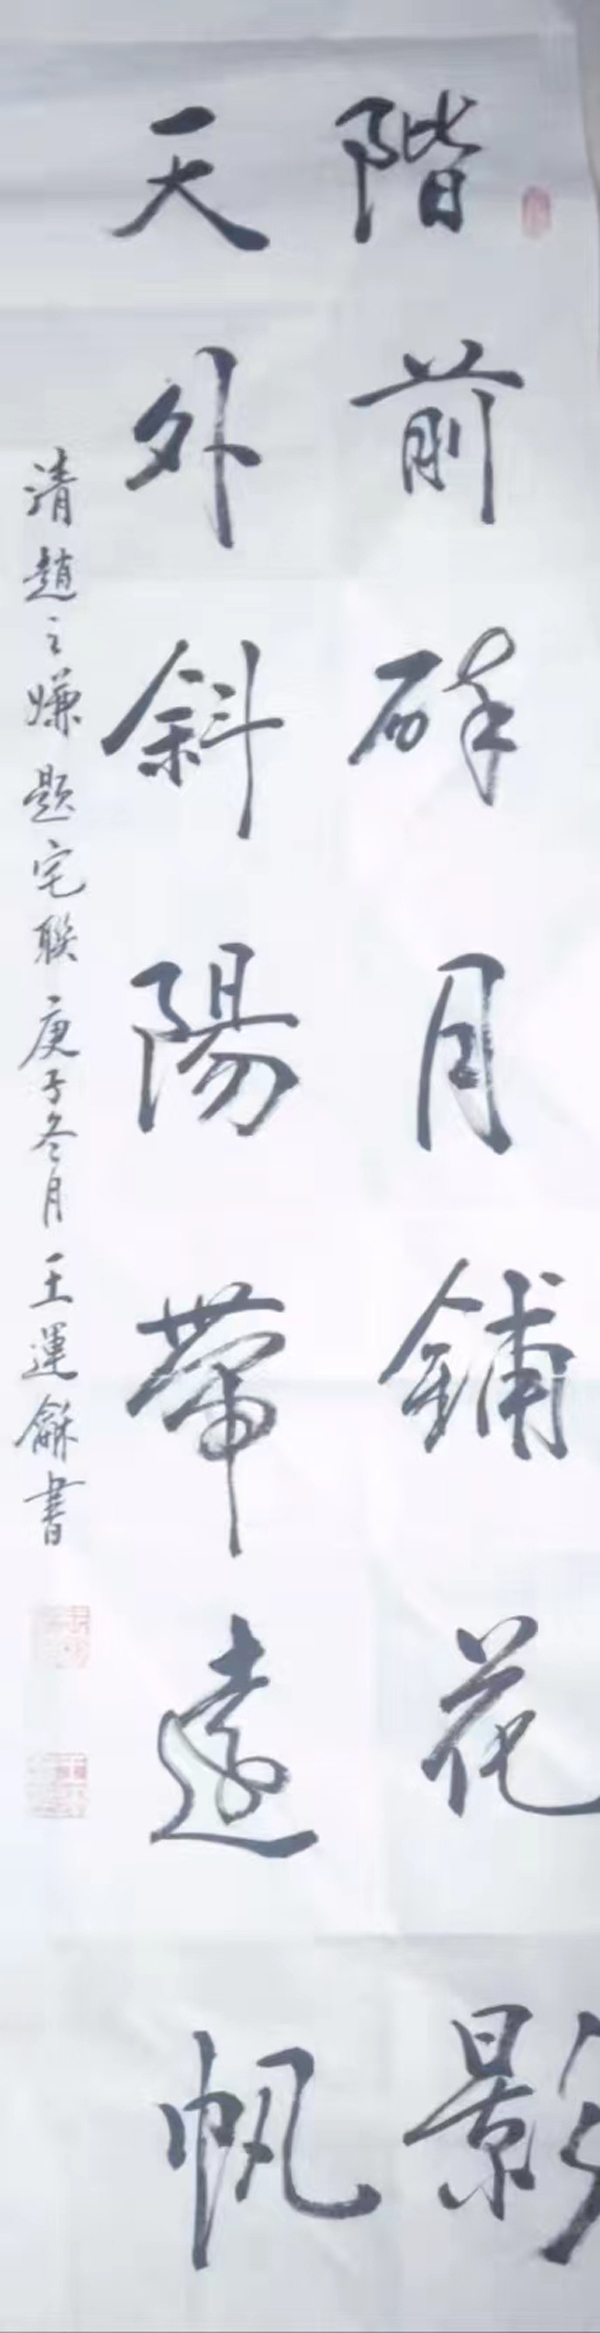 階前碎月鋪花影
天外斜陽帶遠帆
清趙之嫌题宅聯庚子冬月王運龢書